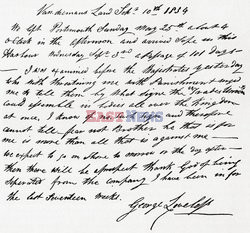 Van diemans Land Sept. 10th 1834
We left Portsmouth Sunday May 25th about 4
o Clock in the afternoon and arrived safe in this
Harbour Wednesday Sept. 3rd a passage of 101 days
I was examined before the Magistrates yesterday
who with threatning and with punishment urged
me to tell them by what signs the "Trades Unions"
could assemble in bodies all over the Kingdom
at once, I know not and therefore
cannot tell fear not Brother he that is for
me is more than all that is against me
we expect to go on shore to morrow or the day after
then there will be a prospect thank God of being
seperated from the company I have been in for
the last seventeen weeks.
George Loveless
EAST NEWS